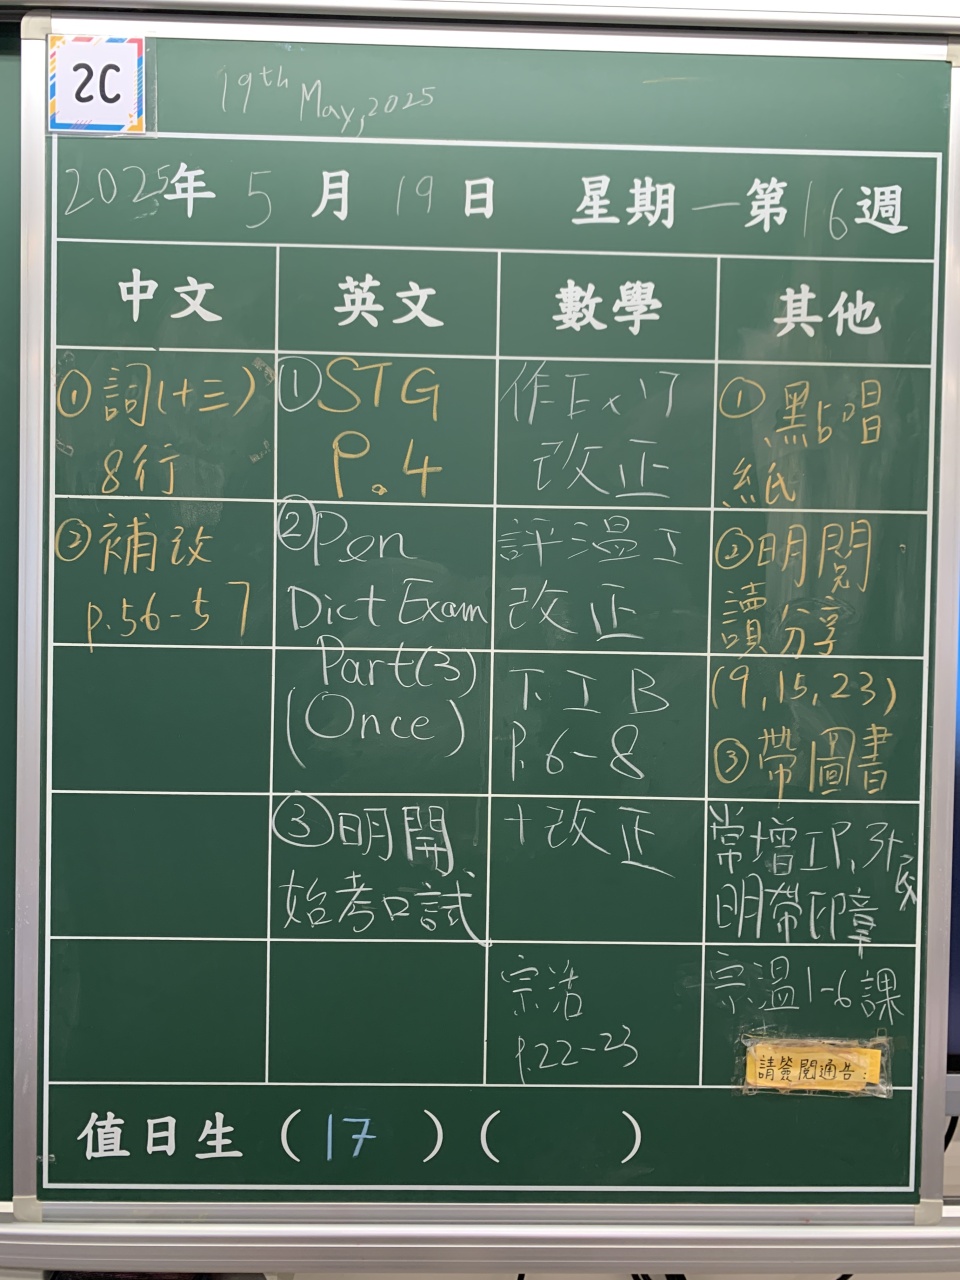 2C
19th May, 2025
2025年 5 月 19 日 星期 一 第 16 週
中文
英文
數學
其他
① 詞(十三)
8行
② 補改
p.56-57
① STG
P.4
② Pen
Dict Exam
Part(3)
(Once)
③ 明開
始考口試
作Ex 17
改正
評溫工
改正
下工B
P.6-8
+改正
宗浩
p.22-23
① 點唱
紙
② 明閱
讀分享
(9,15,23)
③ 帶圖書
常增工P.3
明帶印章
宗溫1-6課
請簽閱通告:
值日生 ( 17 ) ( )